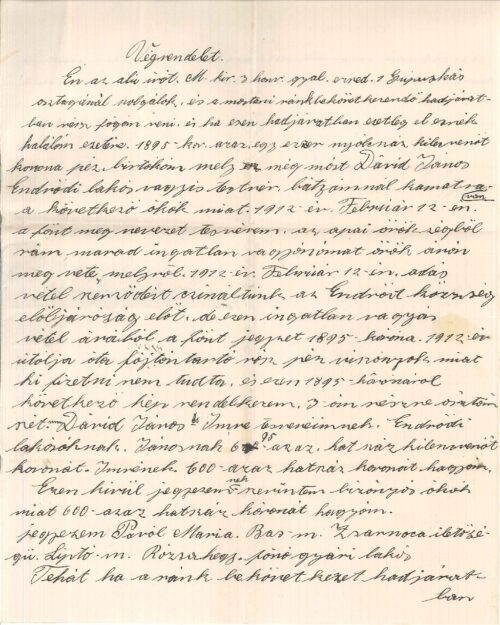 Végrendelet.
Én az alúl írot. M. kir. 3 honv. gyal. ezred. 1 Gépuskás
osztagánál szolgálok, és a mostani ránk bekövetkezendő hadjárat-
ban részt fogom veni. és ha ezen hadjáratban esetleg el esnék
halálom esetére. 1895 kor. azaz egy ezer nyolcszáz kilencvenöt
korona péz. birtokom mely még most Dávid János
Endrődi lakos vagyis testvér. bátyámnál kamatra van
a következő okok miat. 1912 év. Február 12-én.
a fönt meg nevezet tesvérem. az apai örök ségből
rám marad ingatlan vagyonomat örök áron
meg vete, melyről. 1912 év Február 12 én. adás
vételi szerződést csináltunk az Endrődi község
elöljáróság előt. de ezen ingatlan vagyon
vétel árából a fönt jegyzet 1895 korona. 1912 év
utolja óta fojtontartó rosz péz viszonyok miat
ki fizetni nem tudta, és ezen 1895 koronáról
következő kép rendelkezem. 3 om részre osztom
Dávid János és Imre tesvéreimnek. Endrődi
lakosoknak. Jánosnak 695 azaz. hat száz kilencvenöt
koronát. Imrének. 600 azaz hatszáz koronát hagyom.
Ezen kívül jegyesemnek szintén bizonyos okok
miat 600 azaz hatszáz koronát hagyom.
jegyesem Pavol Maria. Bars m. Zsarnoca illetősé-
gü. Liptó m. Rózsahegy. fonó gyári lakos
Tehát ha a ránk bekövetkezet hadjárat-
ban